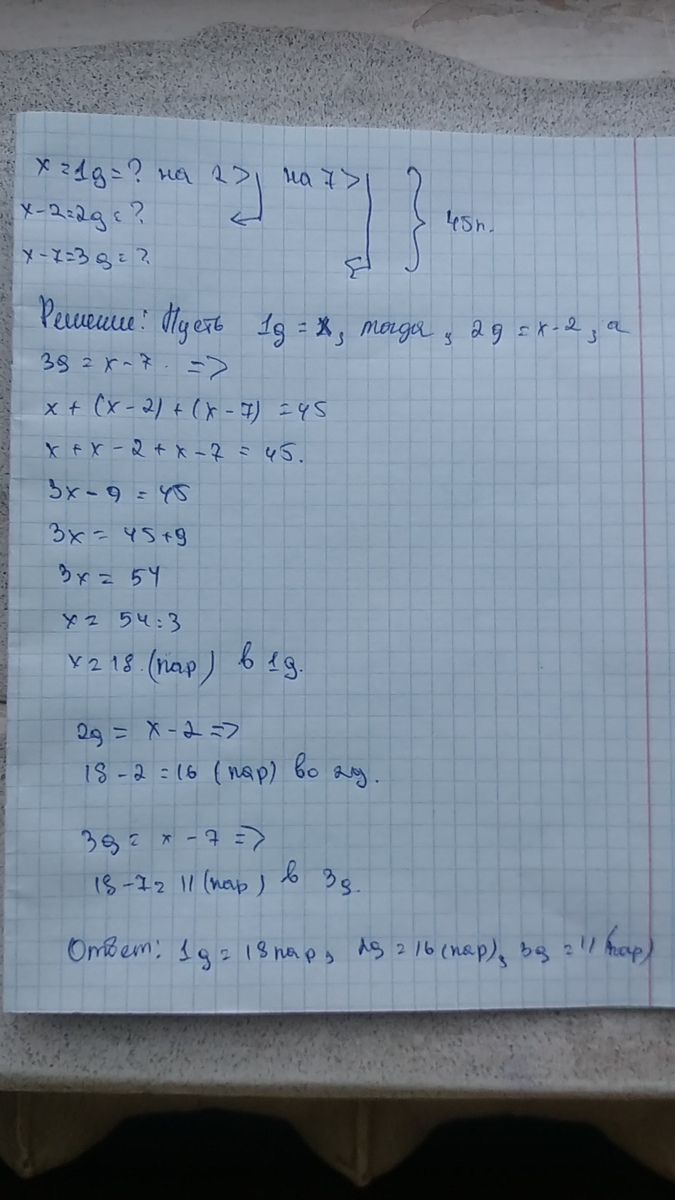 x = 1g = ? на 2 > на 7 >
x - 2 = 2g = ? 45п.
x - 7 = 3g = ?
Решение: Пусть 1g = x, тогда, 2g = x - 2, а
3g = x - 7. =>
x + (x - 2) + (x - 7) = 45
x + x - 2 + x - 7 = 45.
3x - 9 = 45
3x = 45 + 9
3x = 54
x = 54 : 3
x = 18 (пар) в 1g.
2g = x - 2 =>
18 - 2 = 16 (пар) во 2g.
3g = x - 7 =>
18 - 7 = 11 (пар) в 3g.
Ответ: 1g = 18 пар, 2g = 16 (пар), 3g = 11 (пар)